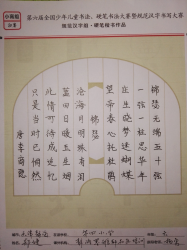 小学组
第六届全国少年儿童书法、硬笔书法大赛暨规范汉字书写大赛
规范汉字组·硬笔楷书作品
锦瑟无端五十弦
一弦一柱思华年
庄生晓梦迷蝴蝶
望帝春心托杜鹃
锦瑟
沧海月明珠有泪
蓝田日暖玉生烟
此情可待成追忆
只是当时已惘然
唐李商隐
第四小学